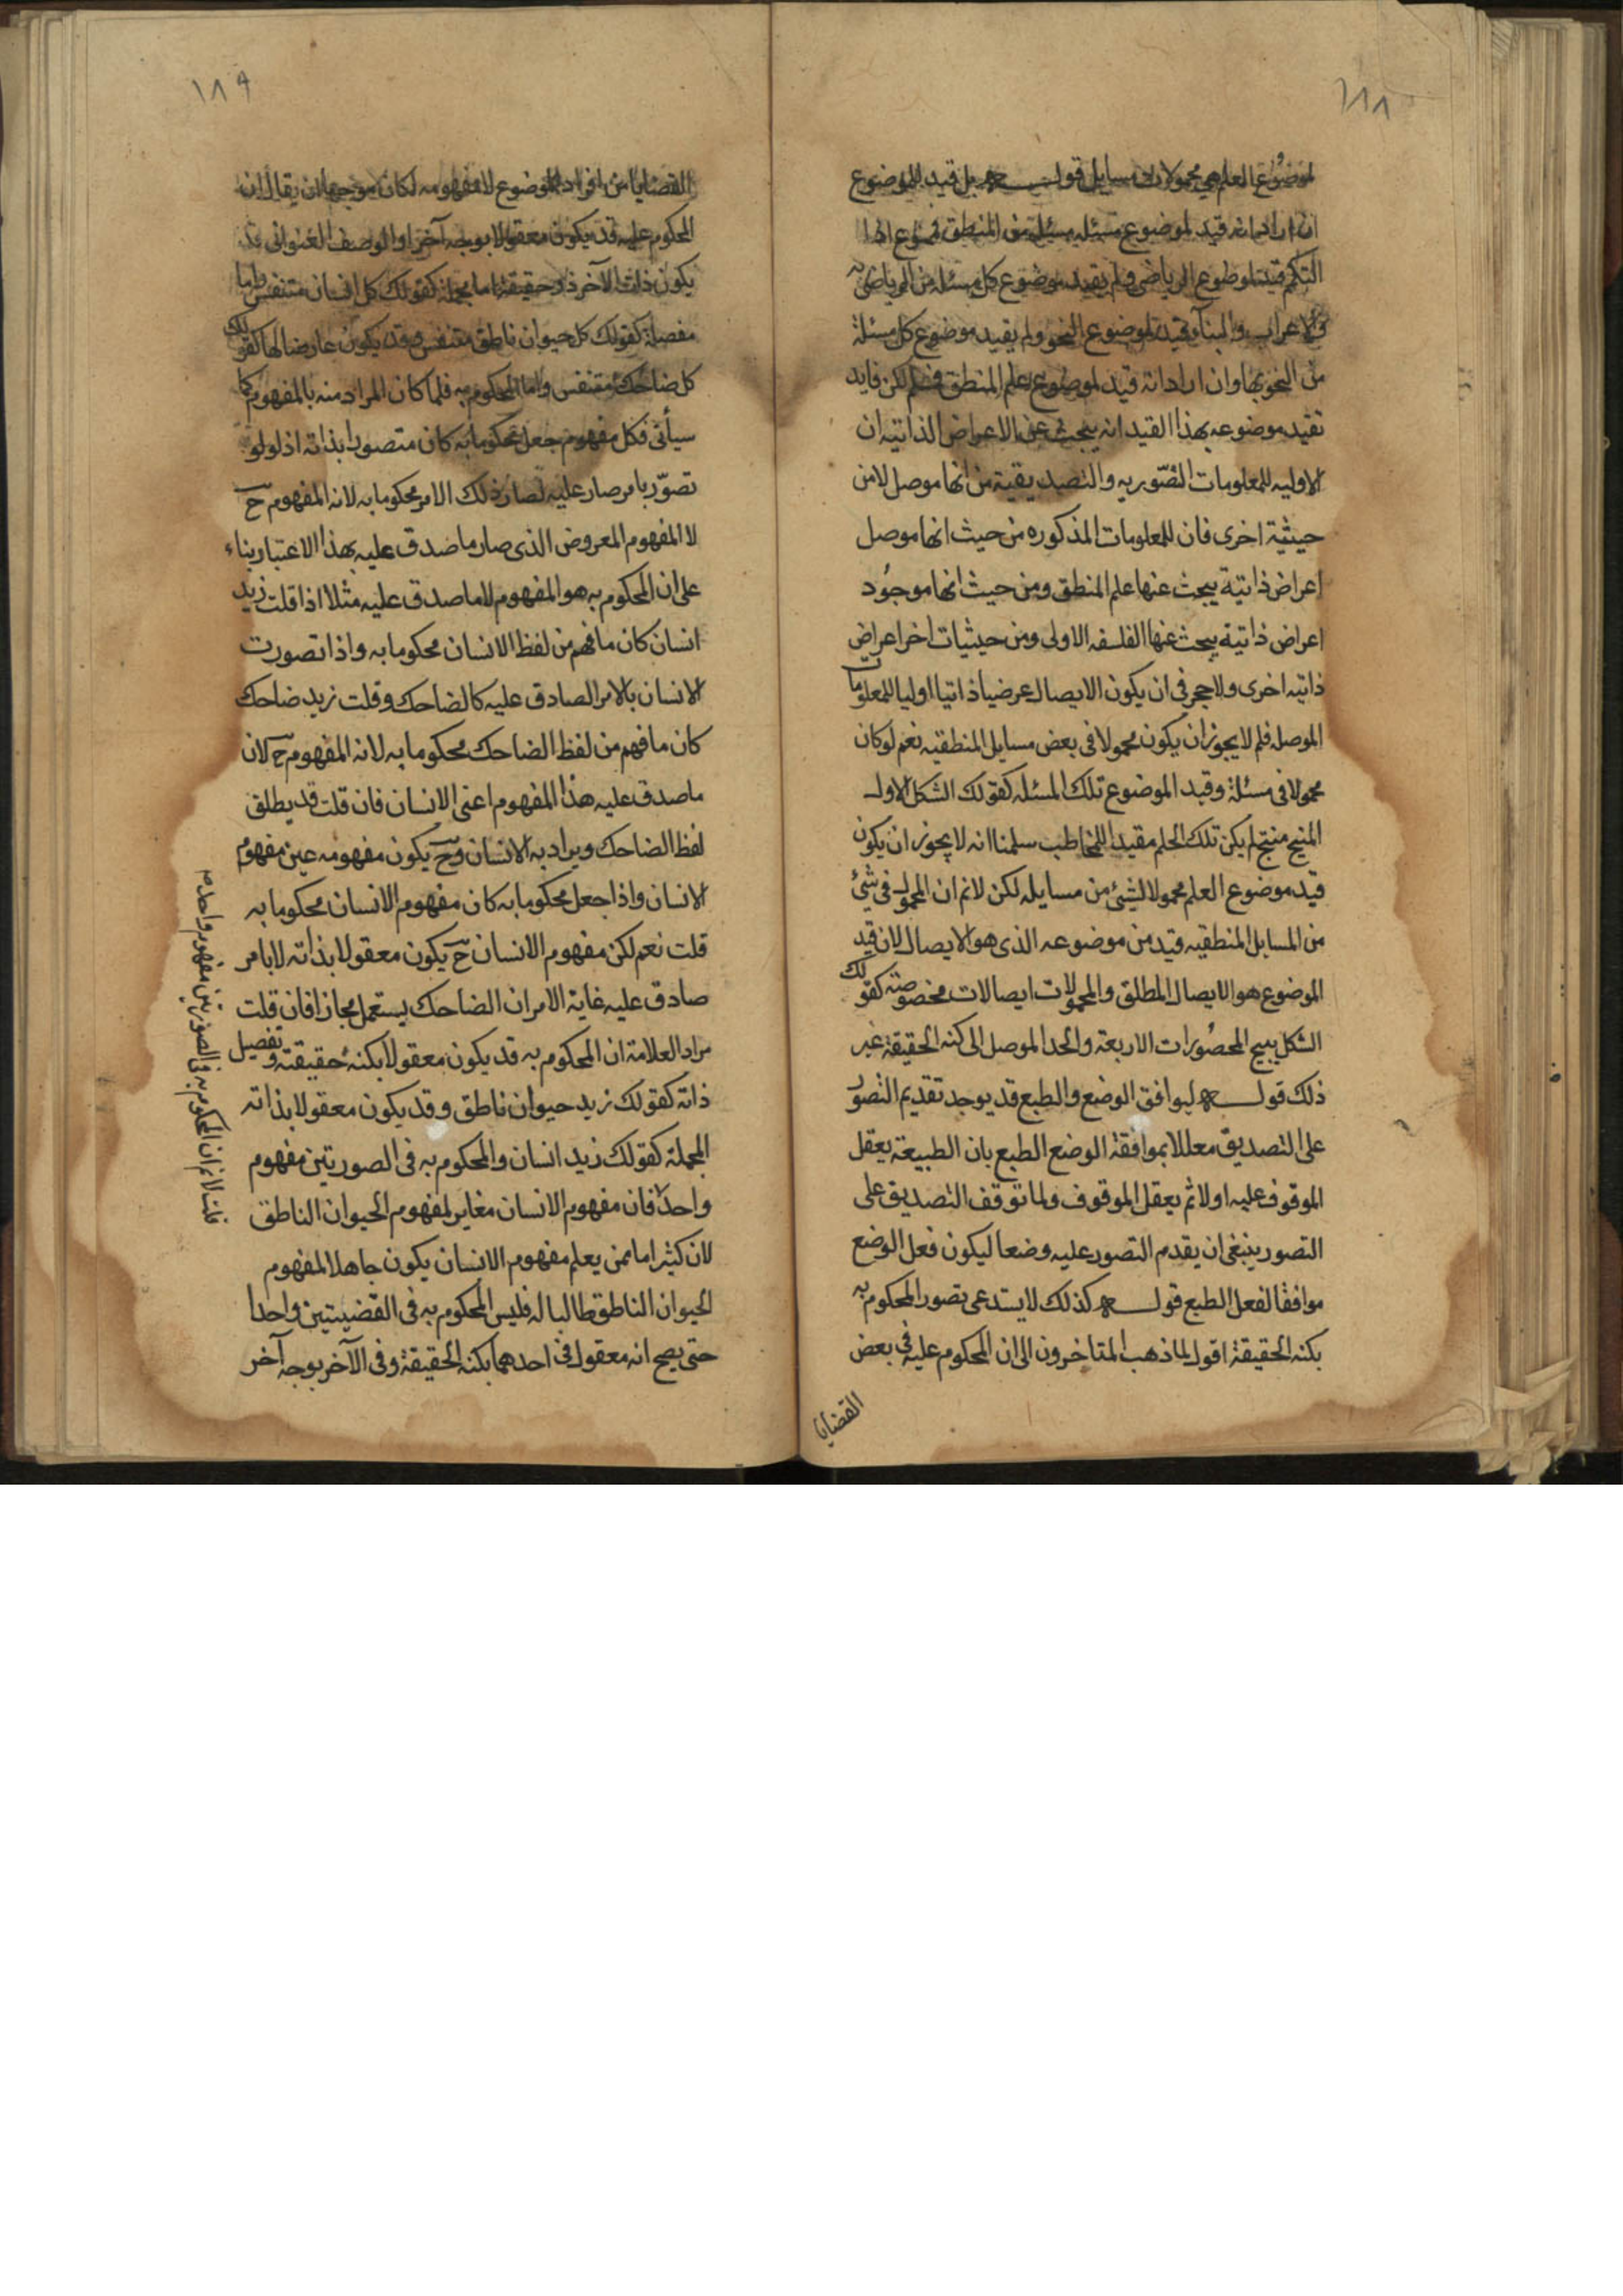 ١٨٨
لموضوع العلم هي محمولات مسايل قولــه بل قيد للموضوع
ان اراد انه قيد لموضوع مسئله مسئلة من المنطق فممنوع
التكم قيد لموضوع الرياضى ولم يقيد موضوع كل مسئلة من الرياضى به
والاعراب والبنآء قيد لموضوع النحو ولم يقيد موضوع كل مسئلة
من النحو بها وان اراد انه قيد لموضوع علم المنطق فمسلم لكن فايد
تقيد موضوعه بهذا القيد انه يبحث عن الاعراض الذاتيه ان
الاوليه للمعلومات التصّوريه والتصديقية من انها موصل لا من
حيثية اخرى فان للمعلومات المذكوره من حيث انها موصل
اعراض ذاتية يبحث عنها علم المنطق ومن حيث انها موجُود
اعراض ذاتية يبحث عنها الفلسفه الاولى ومن حيثيات اخر اعراض
ذاتيه اخرى ولا حجر فى ان يكون الايصال عرضيا ذاتيا اوليا للمعلومات
الموصله فلم لا يجوز ان يكون محمولا فى بعض مسايل المنطقيه نعم لو كان
محمولا فى مسئلة وقيد الموضوع تلك المسئله كقولك الشكل الاول
المنتج منتج لم يكن تلك الحلم مقيدا للمخاطب سلمنا انه لا يجوز ان يكون
قيد موضوع العلم محمولا لشئ من مسايله لكن لانم ان المحمول فى شئ
من المسايل المنطقيه قيد من موضوعه الذى هو الايصال لان قيد
الموضوع هو الايصال المطلق والمحمولات ايصالات مخصوصة كقولك
الشكل ينتج المحصُورات الاربعة والحد الموصل الى كنه الحقيقة غير
ذلك قولــه ليوافق الوضع والطبع قد يوجد تقديم التصور
على التصديق معللا بموافقة الوضع الطبع بان الطبيعة يعقل
الموقوف عليه اولا ثم يعقل الموقوف ولما توقف التصديق على
التصور ينبغى ان يقدم التصور عليه وضعا ليكون فعل الوضع
موافقا لفعل الطبع قولــه كذلك لا يستدعى تصور المحكوم به
بكنه الحقيقة اقول لما ذهب المتاخرون الى ان المحكوم عليه فى بعض
القضايا
١٨٩
القضايا من افراد الموضوع لا مفهومه لكان موجها ان يقال ان
المحكوم عليه قد يكون معقولا بوجه آخر او الوصف العنوانى قد
يكون ذات الآخر ذاته حقيقة اما مجملة كقولك كل انسان متنفس واما
مفصلة كقولك كل حيوان ناطق متنفس وقد يكون عارضا لها كقولك
كل ضاحك متنفس واما المحكوم به فلما كان المراد منه بالمفهوم كما
سيأتى فكل مفهوم جعل محكوما به كان متصورا بذاته اذ لو لو
تصوّر بامر صار عليه لصار ذلك الامر محكوما به لانه المفهوم ح
لا المفهوم المعروض الذى صار ما صدق عليه بهذا الاعتبار بناء
على ان المحكوم به هو المفهوم لا ما صدق عليه مثلا اذا قلت زيد
انسان كان ما فهم من لفظ الانسان محكوما به واذا تصورت
الانسان بالامر الصادق عليه كالضاحك وقلت زيد ضاحك
كان ما فهم من لفظ الضاحك محكوما به لانه المفهوم ح لان
ما صدق عليه هذا المفهوم اعنى الانسان فان قلت قد يطلق
لفظ الضاحك ويراد به الانسان وح يكون مفهومه عين مفهوم
الانسان واذا جعل محكوما به كان مفهوم الانسان محكوما به
قلت نعم لكن مفهوم الانسان ح يكون معقولا بذاته لا بامر
صادق عليه غاية الامر ان الضاحك يستعمل مجازا فان قلت
مراد العلامة ان المحكوم به قد يكون معقولا بكنه حقيقته وتفصيل
ذاته كقولك زيد حيوان ناطق وقد يكون معقولا بذاته
المجملة كقولك زيد انسان والمحكوم به فى الصورتين مفهوم
واحد فان مفهوم الانسان مغاير لمفهوم الحيوان الناطق
لان كثيرا ما ممن يعلم مفهوم الانسان يكون جاهلا لمفهوم
الحيوان الناطق طالبا له فليس المحكوم به فى القضيتين واحدا
حتى يصح انه معقول فى احدهما بكنه الحقيقة وفى الآخر بوجه آخر
قلت لا نم ان المحكوم به فى الصورتين مفهوم واحد